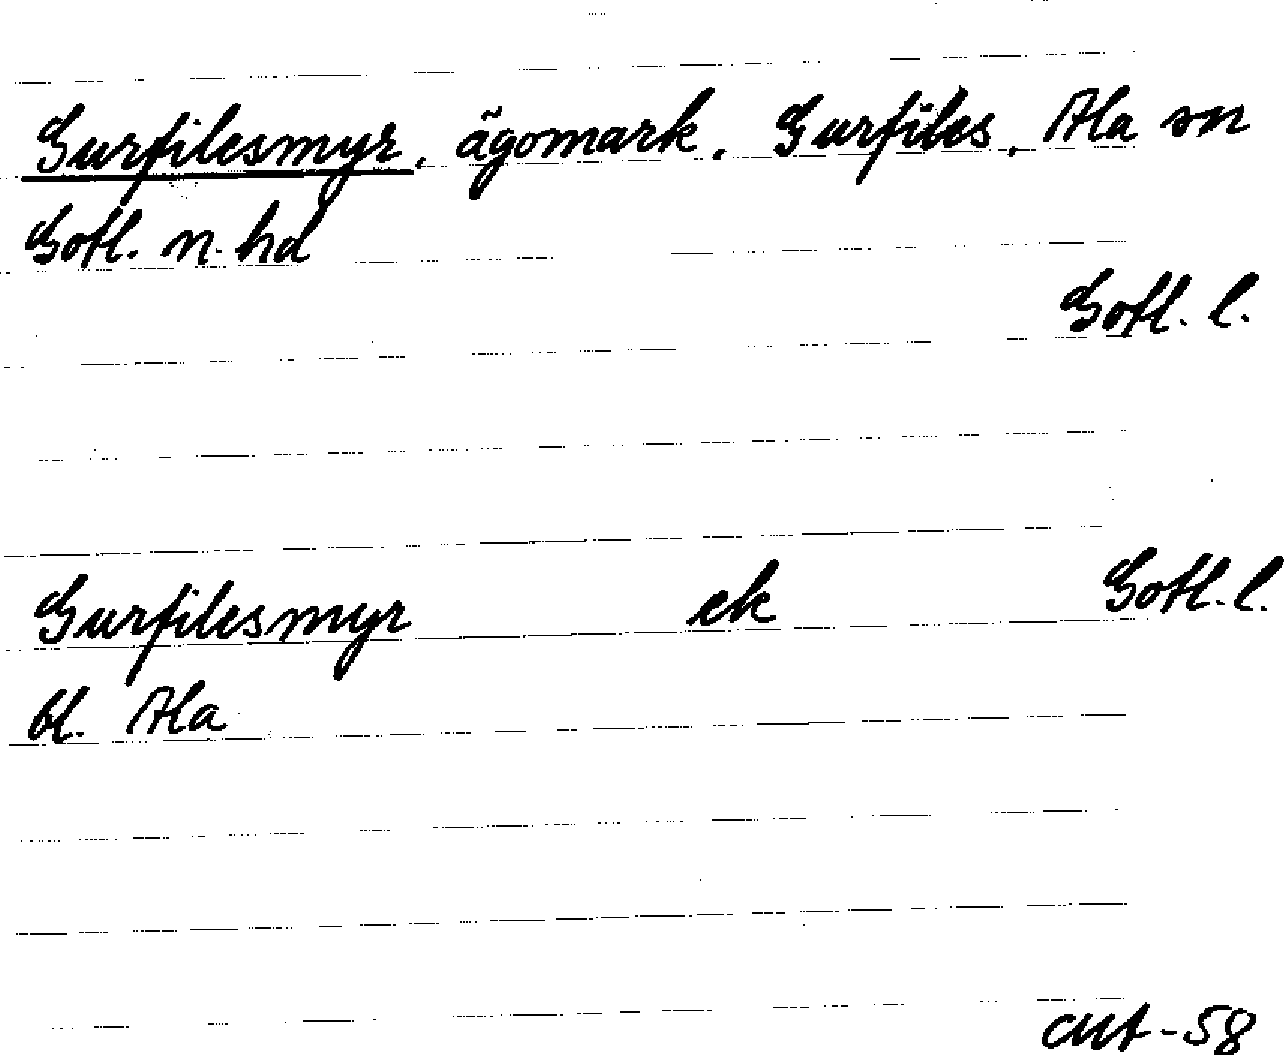 Gurfilesmyr, ägomark, Gurfiles, Ala sn
Gotl. n. hd
Gotl. l.
Gurfilesmyr ek Gotl. l.
bl. Ala